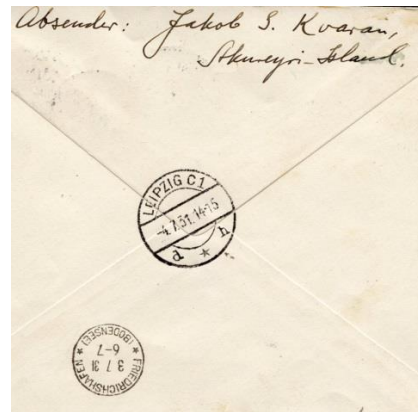 Absender: Jakob S. Kvaran,
Akureyri-Island.
LEIPZIG C1
-4.7.31.14-15
d * h
* FRIEDRICHSHAFEN *
(BODENSEE)
3 7 31
6-7